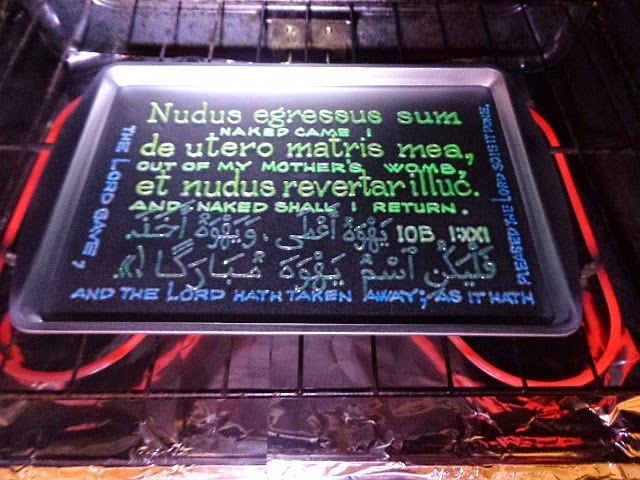 Nudus egressus sum
NAKED CAME I
de utero matris mea,
OUT OF MY MOTHER'S WOMB,
et nudus revertar illuc.
AND NAKED SHALL I RETURN.
يَهْوَهُ أَعْطَى ، وَيَهْوَهُ أَخَذَ
IOB I:XXI
فَلْيَكُنِ ٱسْمُ يَهْوَهَ مُبَارَكًا
THE LORD GAVE,
AND THE LORD HATH TAKEN AWAY; AS IT HATH
PLEASED THE LORD SO IS IT DONE.